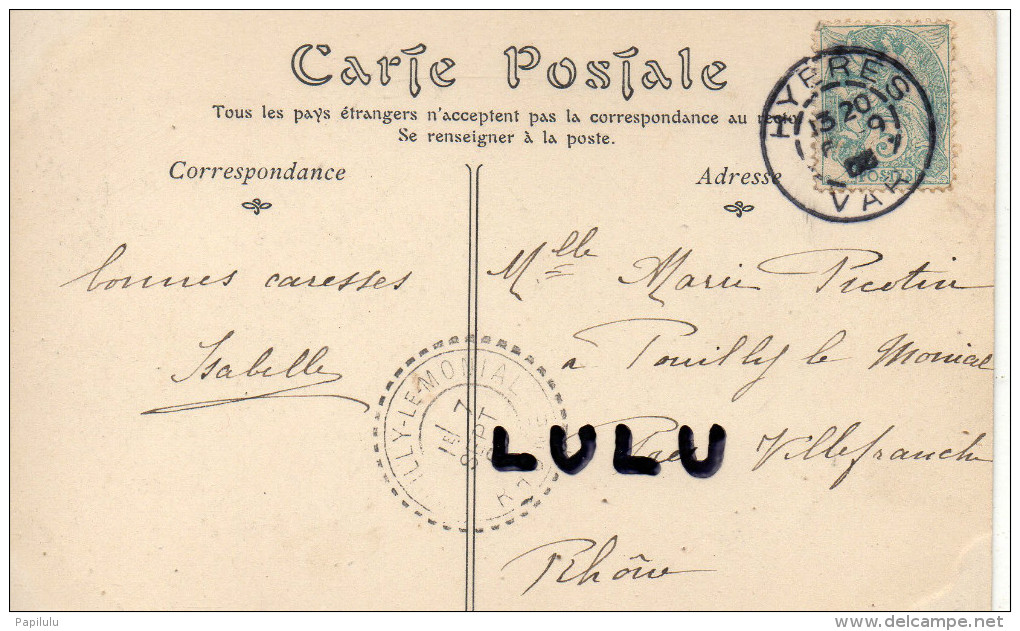 Carte Postale
Tous les pays étrangers n'acceptent pas la correspondance au recto
Se renseigner à la poste.
Correspondance
Adresse
HYERES
VAR
POSTES
bonnes caresses
Isabelle
Mlle Marie Picotin
à Pouilly le Monial
Par Villefranche
Rhône
ILLY-LE-MONIAL
7
SEPT
LULU
Papilulu
delcampe.net